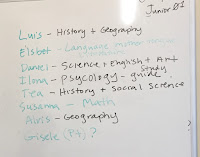 Junior 01
Luis - History + Geography
Elsbet - Language mother tongue
Daniel - Science + English + Art
Study
Ilona - Psycology - guide
Tea - History + Social Science
Susanna - Math
Airis - Geography
Gisele (P4)?